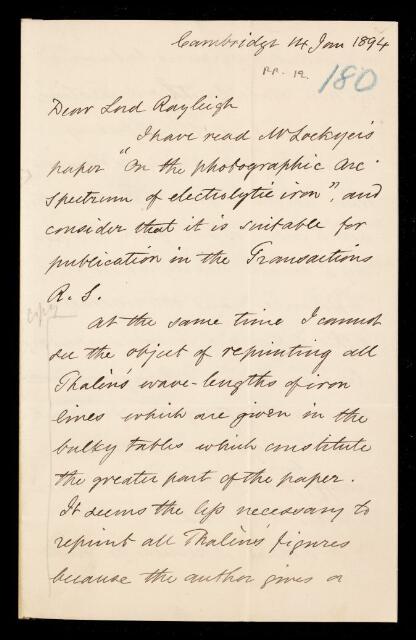 Cambridge 14 Jan 1894
RR. 12.
180
Dear Lord Rayleigh
I have read Mr Lockyer's
paper "On the photographic Arc
spectrum of electrolytic iron", and
consider that it is suitable for
publication in the Transactions
R. S.
copy
At the same time I cannot
see the object of reprinting all
Thalèn's wave-lengths of iron
lines which are given in the
bulky tables which constitute
the greater part of the paper.
It seems the less necessary to
reprint all Thalèn's figures
because the author gives a